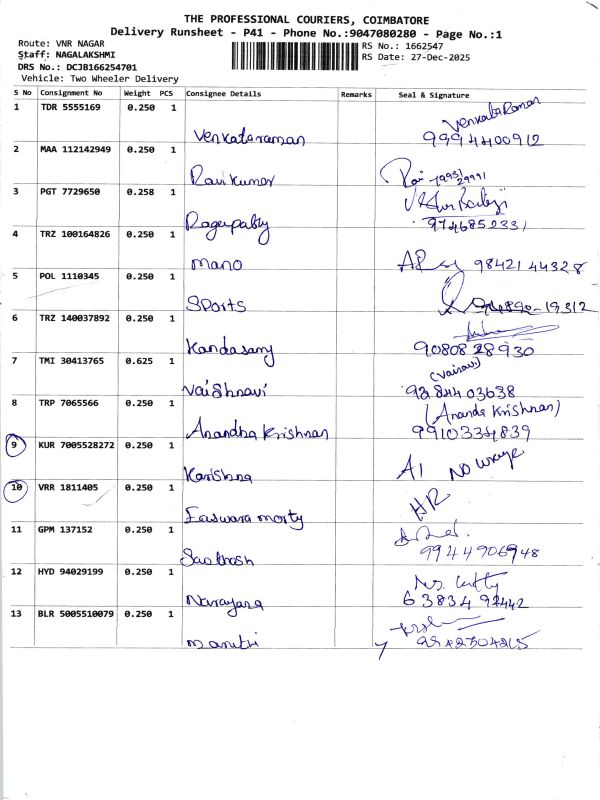 THE PROFESSIONAL COURIERS, COIMBATORE
Delivery Runsheet - P41 - Phone No.:9047080280 - Page No.:1
Route: VNR NAGAR
Staff: NAGALAKSHMI
DRS No.: DCJB166254701
Vehicle: Two Wheeler Delivery
RS No.: 1662547
RS Date: 27-Dec-2025
S No Consignment No Weight PCS Consignee Details Remarks Seal & Signature
1 TDR 5555169 0.250 1 Venkataraman Venkata Raman
9994400912
2 MAA 112142949 0.250 1 Ravikumar Ravi
3 PGT 7729650 0.258 1
9746852331
4 TRZ 100164826 0.250 1 Mano 98421 44328
5 POL 1110345 0.250 1 Sports 94890-19312
6 TRZ 140037892 0.250 1 Kandasamy
9080828930
7 TMI 30413765 0.625 1 Vaishnavi (Vaisnavi)
9384403638
8 TRP 7065566 0.250 1 Anandha Krishnan (Ananda Krishnan)
9910334839
9 KUR 7005528272 0.250 1 Karishna A1
10 VRR 1811405 0.250 1 Easwara morty HR
11 GPM 137152 0.250 1
9944906948
12 HYD 94029199 0.250 1 Narayana
63834 92442
13 BLR 5005510079 0.250 1 Maruthi
9942304265